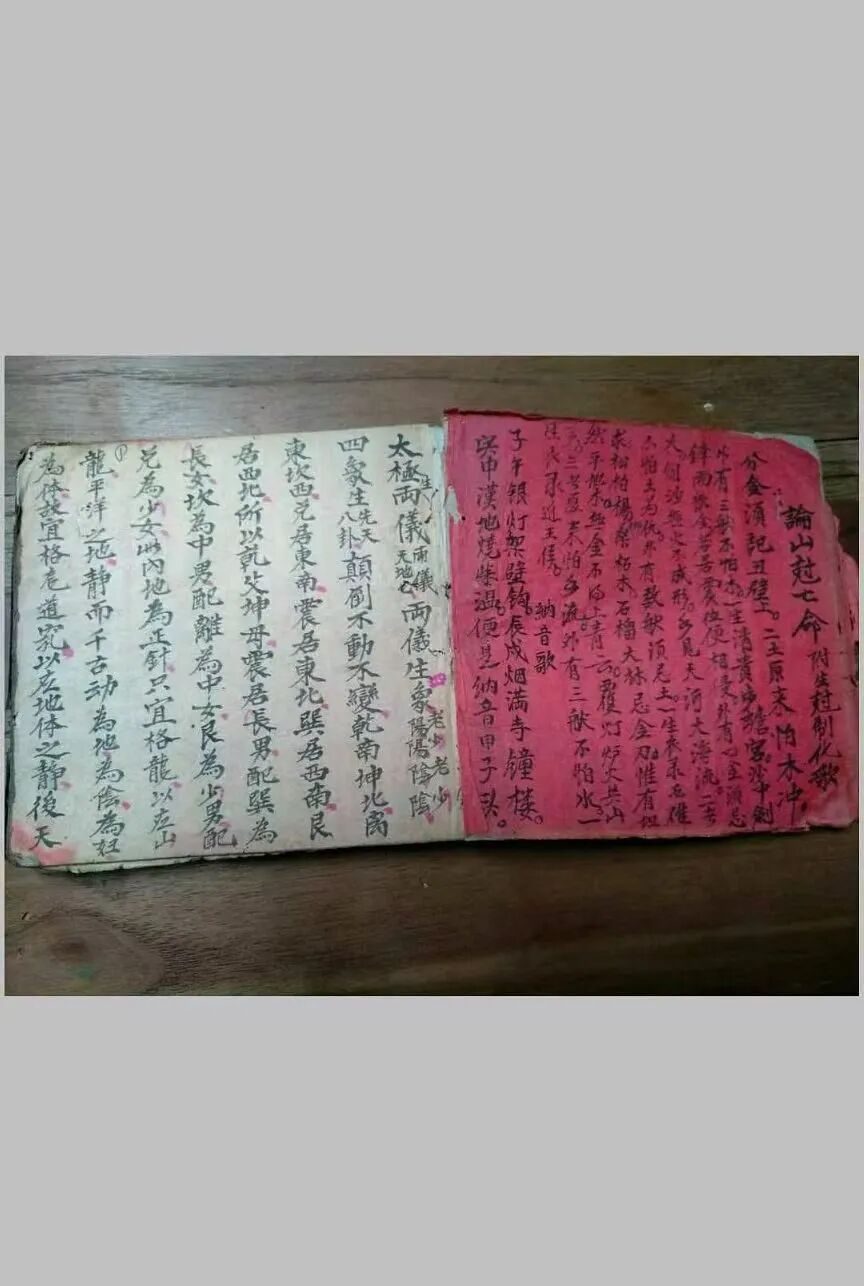 論山尅亡命 附生尅制化歌
分金須記丑壁上。二王原來怕木冲。
外有三般不怕木。一生清貴步蟾宮。沙中劍
鋒兩般金若居震位便相侵外有金須忌
火。沙恆火不成形。見天河大海流。二者
不怕土為仇。外有数般須忌土。一生衣禄必
求松柏楊柳桑柘木。石榴大林忌金刀。惟有坦
然平地木無金不得上青雲。覆灯炉火共山
頭。三者原來怕水流外有三般不怕水。一
生衣禄近王侯。
納音歌
子午银灯架壁钩。辰戌烟满寺鐘楼。
寅申漢地燒柴温。便是納音甲子頭。
太極生両儀 両儀天地也 両儀生四象陽陽陰陰 老少老少
四象生先天八卦顛倒不動不變乾南坤北离
東坎西兑居東南震居東北巽居西南艮
居西北所以乾父坤母震居長男配巽為
長女坎為中男配離為中女艮為少男配
兑為少女此內地為正針只宜格龍以左山
龍平洋之地静而千古动為地為陰為妇
為体故宜格龙道穴以左地体之静後天